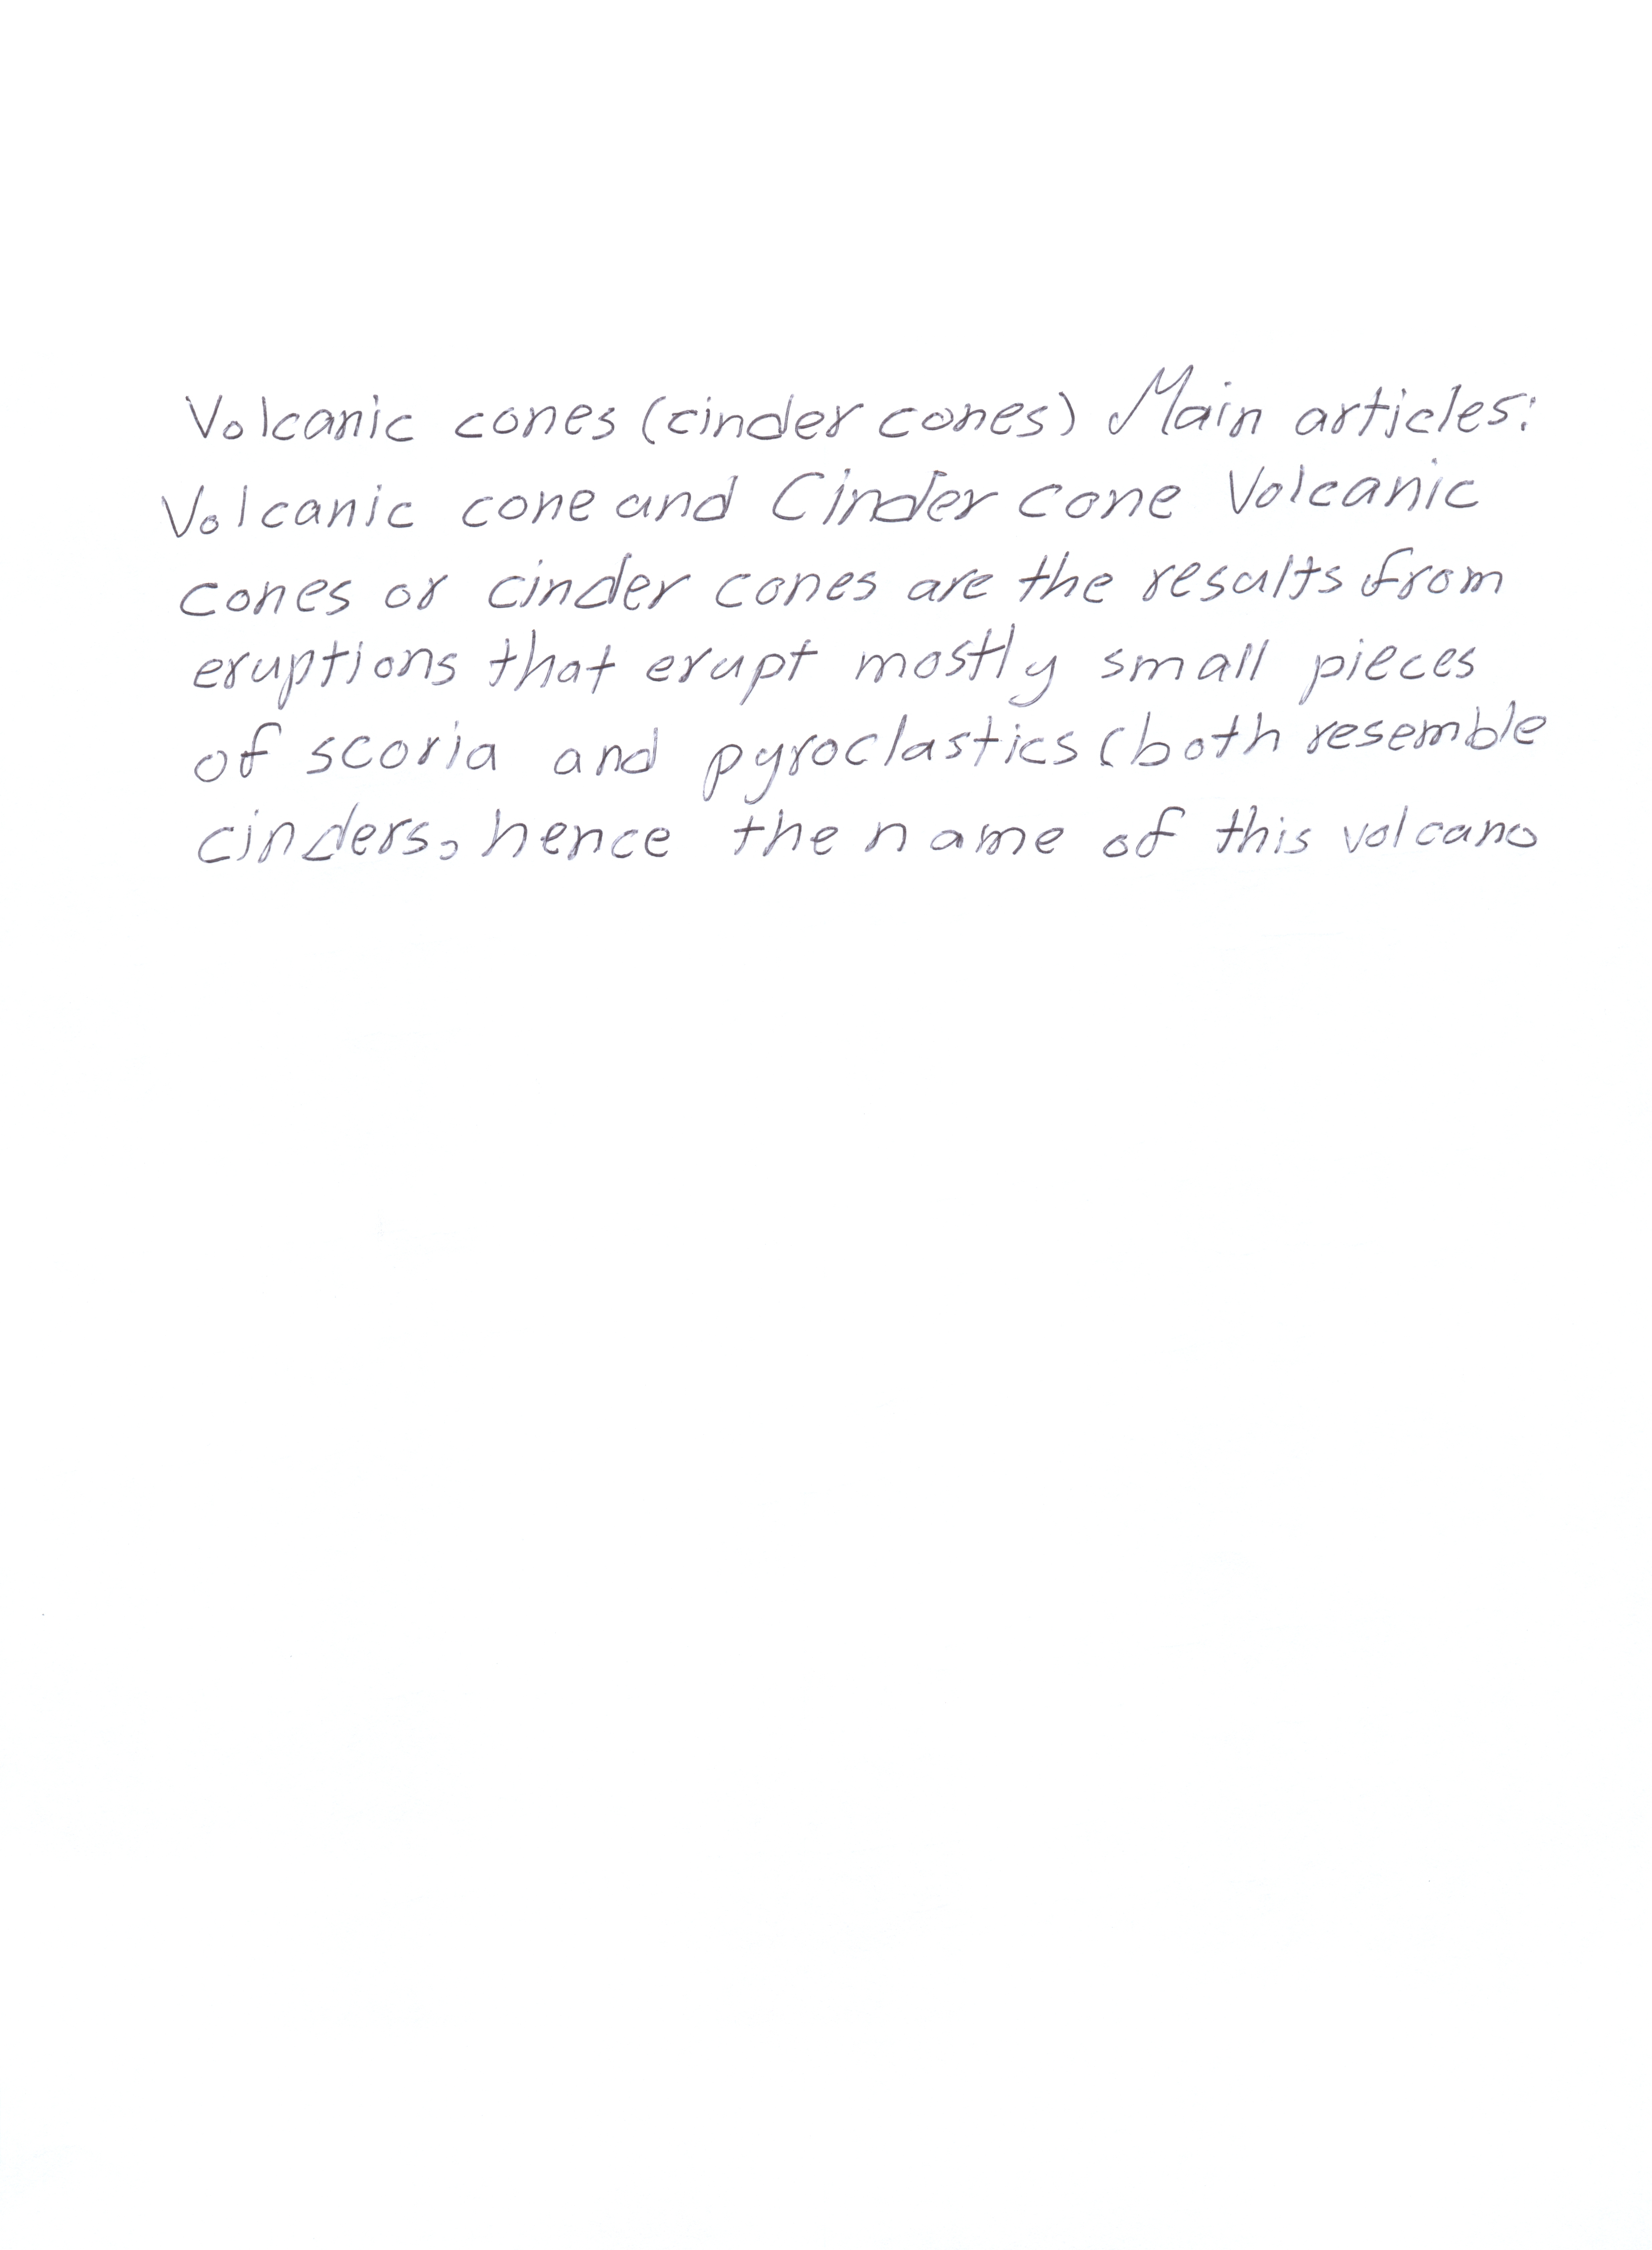 Volcanic cones (cinder cones) Main articles:
Volcanic cone and Cinder cone Volcanic
cones or cinder cones are the results from
eruptions that erupt mostly small pieces
of scoria and pyroclastics (both resemble
cinders, hence the name of this volcano